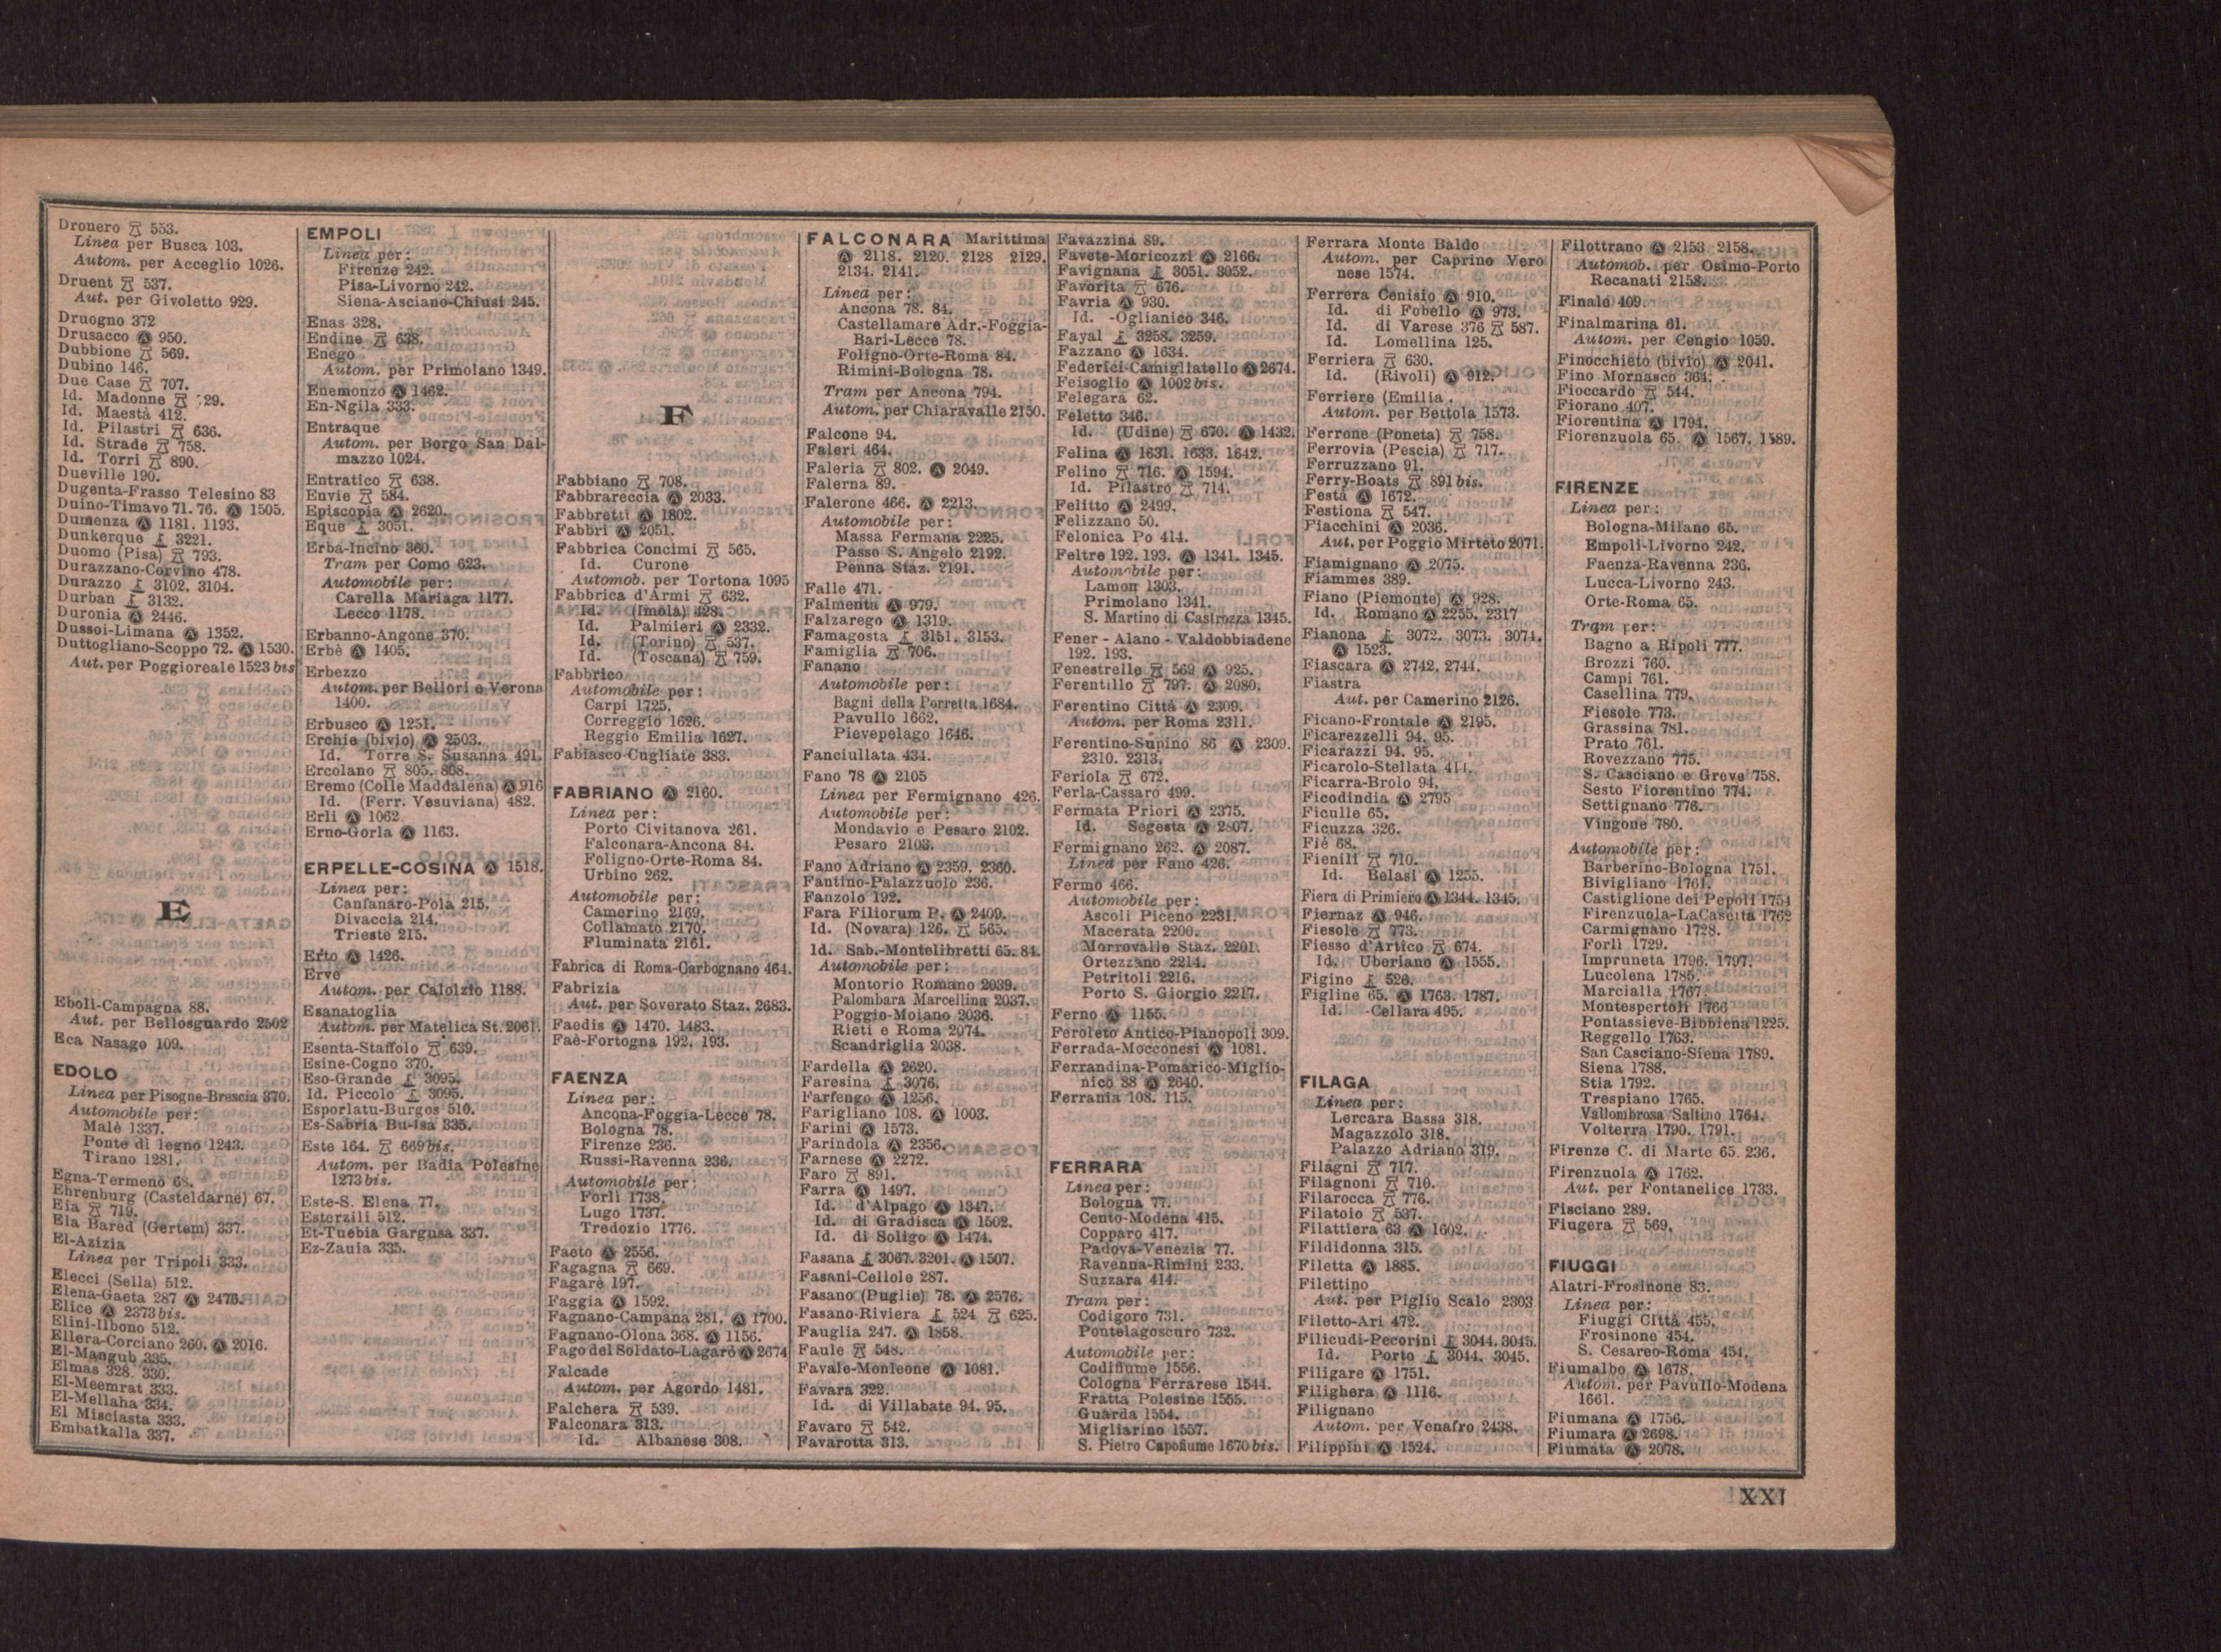 Dronero 553.
Linea per Busca 103.
Autom. per Acceglio 1026.
Druent 537.
Aut. per Givoletto 929.
Druogno 372
Drusacco Ⓐ 950.
Dubbione 569.
Dubino 146.
Due Case 707.
Id. Madonne 29.
Id. Maestà 412.
Id. Pilastri 636.
Id. Strade 758.
Id. Torri 890.
Dueville 190.
Dugenta-Frasso Telesino 83
Duino-Timavo 71. 76. Ⓐ 1505.
Dumenza Ⓐ 1181. 1193.
Dunkerque 3221.
Duomo (Pisa) 793.
Durazzano-Cervino 478.
Durazzo 3102. 3104.
Durban 3132.
Duronia Ⓐ 2446.
Dussoi-Limana Ⓐ 1352.
Duttogliano-Scoppo 72. Ⓐ 1530.
Aut. per Poggioreale 1523 bis
E
Eboli-Campagna 88.
Aut. per Bellosguardo 2502
Eca Nasago 109.
EDOLO
Linea per Pisogne-Brescia 370.
Automobile per:
Malè 1337.
Ponte di legno 1243.
Tirano 1281.
Egna-Termeno 68.
Ehrenburg (Casteldarne) 67.
Eia 719.
Ela Bared (Gertem) 337.
El-Azizia
Linea per Tripoli 333.
Elecci (Sella) 512.
Elena-Gaeta 287 Ⓐ 2476.
Elice Ⓐ 2373 bis.
Elini-Ilbono 512.
Ellera-Corciano 260. Ⓐ 2016.
El-Mangub 335.
Elmas 328. 330.
El-Meemrat 333.
El-Mellaha 334.
El Misciasta 333.
Embatkalla 337.
EMPOLI
Linea per:
Firenze 242.
Pisa-Livorno 242.
Siena-Asciano-Chiusi 245.
Enas 328.
Endine 638.
Enego
Autom. per Primolano 1349.
Enemonzo Ⓐ 1462.
En-Ngila 333.
Entraque
Autom. per Borgo San Dal-
mazzo 1024.
Entratico 638.
Envie 584.
Episcopia Ⓐ 2620.
Eque 3051.
Erba-Incino 360.
Tram per Como 623.
Automobile per:
Carella Mariaga 1177.
Lecco 1178.
Erbanno-Angone 370.
Erbè Ⓐ 1405.
Erbezzo
Autom. per Bellori e Verona
1400.
Erbusco Ⓐ 1251.
Erchie (bivio) Ⓐ 2503.
Id. Torre S. Susanna 491.
Ercolano 805. 808.
Eremo (Colle Maddalena) Ⓐ 916
Id. (Ferr. Vesuviana) 482.
Erli Ⓐ 1062
Erno-Gorla Ⓐ 1163.
ERPELLE-COSINA Ⓐ 1518.
Linea per:
Canfanaro-Pola 215.
Divaccia 214.
Trieste 215.
Erto Ⓐ 1426.
Erve
Autom. per Calolzio 1188.
Esanatoglia
Autom. per Matelica St. 2061.
Esenta-Staffolo 639.
Esine-Cogno 370.
Eso-Grande 3095.
Id. Piccolo 3095.
Esporlatu-Burgos 510.
Es-Sabria Bu-Isa 335.
Este 164. 669 bis.
Autom. per Badia Polesine
1273 bis.
Este-S. Elena 77.
Esterzili 512.
Et-Tuebia Gargusa 337.
Ez-Zauia 335.
F
Fabbiano 708.
Fabbrareccia Ⓐ 2033.
Fabbretti Ⓐ 1802.
Fabbri Ⓐ 2051.
Fabbrica Concimi 565.
Id. Curone
Automob. per Tortona 1095
Fabbrica d'Armi 632.
Id. (Imola) 428.
Id. Palmieri Ⓐ 2332.
Id. (Torino) 537.
Id. (Toscana) 759.
Fabbrico
Automobile per:
Carpi 1725.
Correggio 1626.
Reggio Emilia 1627.
Fabiasco-Cugliate 383.
FABRIANO Ⓐ 2160.
Linea per:
Porto Civitanova 261.
Falconara-Ancona 84.
Foligno-Orte-Roma 84.
Urbino 262.
Automobile per:
Camerino 2169.
Collamato 2170.
Fluminata 2161.
Fabrica di Roma-Carbognano 464.
Fabrizia
Aut. per Soverato Staz. 2683.
Faedis Ⓐ 1470. 1483.
Faè-Fortogna 192. 193.
FAENZA
Linea per:
Ancona-Foggia-Lecce 78.
Bologna 78.
Firenze 236.
Russi-Ravenna 236.
Automobile per:
Forlì 1738.
Lugo 1737.
Tredozio 1776.
Faeto Ⓐ 2556.
Fagagna 669.
Fagarè 197.
Faggia Ⓐ 1592.
Fagnano-Campana 281. Ⓐ 1700.
Fagnano-Olona 368. Ⓐ 1156.
Fago del Soldato-Lagarò Ⓐ 2674
Falcade
Autom. per Agordo 1481.
Falchera 539.
Falconara 313.
Id. Albanese 308.
FALCONARA Marittima
Ⓐ 2118. 2120. 2128 2129.
2134. 2141.
Linea per:
Ancona 78. 84.
Castellamare Adr.-Foggia-
Bari-Lecce 78.
Foligno-Orte-Roma 84.
Rimini-Bologna 78.
Tram per Ancona 794.
Autom. per Chiaravalle 2150.
Falcone 94.
Faleri 464.
Faleria 802. Ⓐ 2049.
Falerna 89.
Falerone 466. Ⓐ 2213.
Automobile per:
Massa Fermana 2225.
Passo S. Angelo 2192.
Penna Staz. 2191.
Falle 471.
Falmenta Ⓐ 979.
Falzarego Ⓐ 1319.
Famagosta 3151. 3153.
Famiglia 706.
Fanano
Automobile per:
Bagni della Porretta 1684.
Pavullo 1662.
Pievepelago 1646.
Fanciullata 434.
Fano 78 Ⓐ 2105
Linea per Fermignano 426.
Automobile per:
Mondavio e Pesaro 2102.
Pesaro 2103.
Fano Adriano Ⓐ 2359. 2360.
Fantino-Palazzuolo 236.
Fanzolo 192.
Fara Filiorum P. Ⓐ 2409.
Id. (Novara) 126. 565.
Id. Sab.-Montelibretti 65. 84.
Automobile per:
Montorio Romano 2039.
Palombara Marcellina 2037.
Poggio-Moiano 2036.
Rieti e Roma 2074.
Scandriglia 2038.
Fardella Ⓐ 2620.
Faresina 3076.
Farfengo Ⓐ 1256.
Farigliano 108. Ⓐ 1003.
Farini Ⓐ 1573.
Farindola Ⓐ 2356.
Farnese Ⓐ 2272.
Faro 891.
Farra Ⓐ 1497.
Id. d'Alpago Ⓐ 1347.
Id. di Gradisca Ⓐ 1502.
Id. di Soligo Ⓐ 1474.
Fasana 3067. 3201. Ⓐ 1507.
Fasani-Cellole 287.
Fasano (Puglie) 78. Ⓐ 2576.
Fasano-Riviera 524 625.
Fauglia 247. Ⓐ 1858.
Faule 548.
Favale-Monleone Ⓐ 1081.
Favara 322.
Id. di Villabate 94. 95.
Favaro 542.
Favarotta 313.
Favazzina 89.
Favete-Moricozzi Ⓐ 2166.
Favignana 3051. 3052.
Favorita 676.
Favria Ⓐ 930.
Id. -Oglianico 346.
Fayal 3258. 3259.
Fazzano Ⓐ 1634.
Federici-Camigliatello Ⓐ 2674.
Feisoglio Ⓐ 1002 bis.
Felegara 62.
Feletto 346.
Id. (Udine) 670. Ⓐ 1432.
Felina Ⓐ 1631. 1633. 1642.
Felino 716. Ⓐ 1594.
Id. Pilastro 714.
Felitto Ⓐ 2499.
Felizzano 50.
Felonica Po 414.
Feltre 192. 193. Ⓐ 1341. 1345.
Automobile per:
Lamon 1303.
Primolano 1341.
S. Martino di Castrozza 1345.
Fener - Alano - Valdobbiadene
192. 193.
Fenestrelle 569 Ⓐ 925.
Ferentillo 797. Ⓐ 2080.
Ferentino Città Ⓐ 2309.
Autom. per Roma 2311.
Ferentino-Supino 86 Ⓐ 2309.
2310. 2313.
Feriola 672.
Ferla-Cassaro 499.
Fermata Priori Ⓐ 2375.
Id. Segesta Ⓐ 2807.
Fermignano 262. Ⓐ 2087.
Linea per Fano 426.
Fermo 466.
Automobile per:
Ascoli Piceno 2231.
Macerata 2200.
Morrovalle Staz. 2201.
Ortezzano 2214.
Petritoli 2216.
Porto S. Giorgio 2217.
Ferno Ⓐ 1155.
Feroleto Antico-Pianopoli 309.
Ferrada-Mocconesi Ⓐ 1081.
Ferrandina-Pomarico-Miglio-
nico 88 Ⓐ 2640.
Ferrania 108. 115.
FERRARA
Linea per:
Bologna 77.
Cento-Modena 415.
Copparo 417.
Padova-Venezia 77.
Ravenna-Rimini 233.
Suzzara 414.
Tram per:
Codigoro 731.
Pontelagoscuro 732.
Automobile per:
Codifiume 1556.
Cologna Ferrarese 1544.
Fratta Polesine 1555.
Guarda 1554.
Migliarino 1557.
S. Pietro Capofiume 1670 bis.
Ferrara Monte Baldo
Autom. per Caprino Vero
nese 1574.
Ferrera Cenisio Ⓐ 910.
Id. di Fobello Ⓐ 973.
Id. di Varese 376 587.
Id. Lomellina 125.
Ferriera 630.
Id. (Rivoli) Ⓐ 912.
Ferriere (Emilia.
Autom. per Bettola 1573.
Ferrone (Poneta) 758.
Ferrovia (Pescia) 717.
Ferruzzano 91.
Ferry-Boats 891 bis.
Festà Ⓐ 1672.
Festiona 547.
Fiacchini Ⓐ 2036.
Aut. per Poggio Mirteto 2071.
Fiamignano Ⓐ 2075.
Fiammes 389.
Fiano (Piemonte) Ⓐ 928.
Id. Romano Ⓐ 2255. 2317
Fianona 3072. 3073. 3074.
Ⓐ 1523.
Fiascara Ⓐ 2742. 2744.
Fiastra
Aut. per Camerino 2126.
Ficano-Frontale Ⓐ 2195.
Ficarezzelli 94. 95.
Ficarazzi 94. 95.
Ficarolo-Stellata 411.
Ficarra-Brolo 94.
Ficodindia Ⓐ 2795
Ficulle 65.
Ficuzza 326.
Fiè 68.
Fienili 710.
Id. Belasi Ⓐ 1255.
Fiera di Primiero Ⓐ 1344. 1345.
Fiernaz Ⓐ 946.
Fiesole 773.
Fiesso d'Artico 674.
Id. Uberiano Ⓐ 1555.
Figino 526.
Figline 65. Ⓐ 1763. 1787.
Id. -Cellara 495.
FILAGA
Linea per:
Lercara Bassa 318.
Magazzolo 318.
Palazzo Adriano 319.
Filagni 717.
Filagnoni 710.
Filarocca 776.
Filatoio 537.
Filattiera 63 Ⓐ 1602.
Fildidonna 315.
Filetta Ⓐ 1885.
Filettino
Aut. per Piglio Scalo 2303
Filetto-Ari 472.
Filicudi-Pecorini 3044. 3045.
Id. Porto 3044. 3045.
Filigare Ⓐ 1751.
Filighera Ⓐ 1116.
Filignano
Autom. per Venafro 2438.
Filippini Ⓐ 1524.
Filottrano Ⓐ 2153 2158.
Automob. per Osimo-Porto
Recanati 2158.
Finale 409.
Finalmarina 61.
Autom. per Cengio 1059.
Finocchieto (bivio) Ⓐ 2041.
Fino Mornasco 364.
Fioccardo 544.
Fiorano 407.
Fiorentina Ⓐ 1794.
Fiorenzuola 65. Ⓐ 1567. 1589.
FIRENZE
Linea per:
Bologna-Milano 65.
Empoli-Livorno 242.
Faenza-Ravenna 236.
Lucca-Livorno 243.
Orte-Roma 65.
Tram per:
Bagno a Ripoli 777.
Brozzi 760.
Campi 761.
Casellina 779.
Fiesole 773.
Grassina 781.
Prato 761.
Rovezzano 775.
S. Casciano e Greve 758.
Sesto Fiorentino 774.
Settignano 776.
Vingone 780.
Automobile per:
Barberino-Bologna 1751.
Bivigliano 1761.
Castiglione dei Pepoli 1754
Firenzuola-La Casetta 1762
Carmignano 1728.
Forlì 1729.
Impruneta 1796. 1797.
Lucolena 1785.
Marcialla 1767.
Montespertoli 1766
Pontassieve-Bibbiena 1225.
Reggello 1763.
San Casciano-Siena 1789.
Siena 1788.
Stia 1792.
Trespiano 1765.
Vallombrosa Saltino 1764.
Volterra 1790. 1791.
Firenze C. di Marte 65. 236.
Firenzuola Ⓐ 1762.
Aut. per Fontanelice 1733.
Fisciano 289.
Fiugera 569.
FIUGGI
Alatri-Frosinone 83.
Linea per:
Fiuggi Città 455.
Frosinone 454.
S. Cesareo-Roma 454.
Fiumalbo Ⓐ 1678.
Autom. per Pavullo-Modena
1661.
Fiumana Ⓐ 1756.
Fiumara Ⓐ 2698.
Fiumata Ⓐ 2078.
XXI